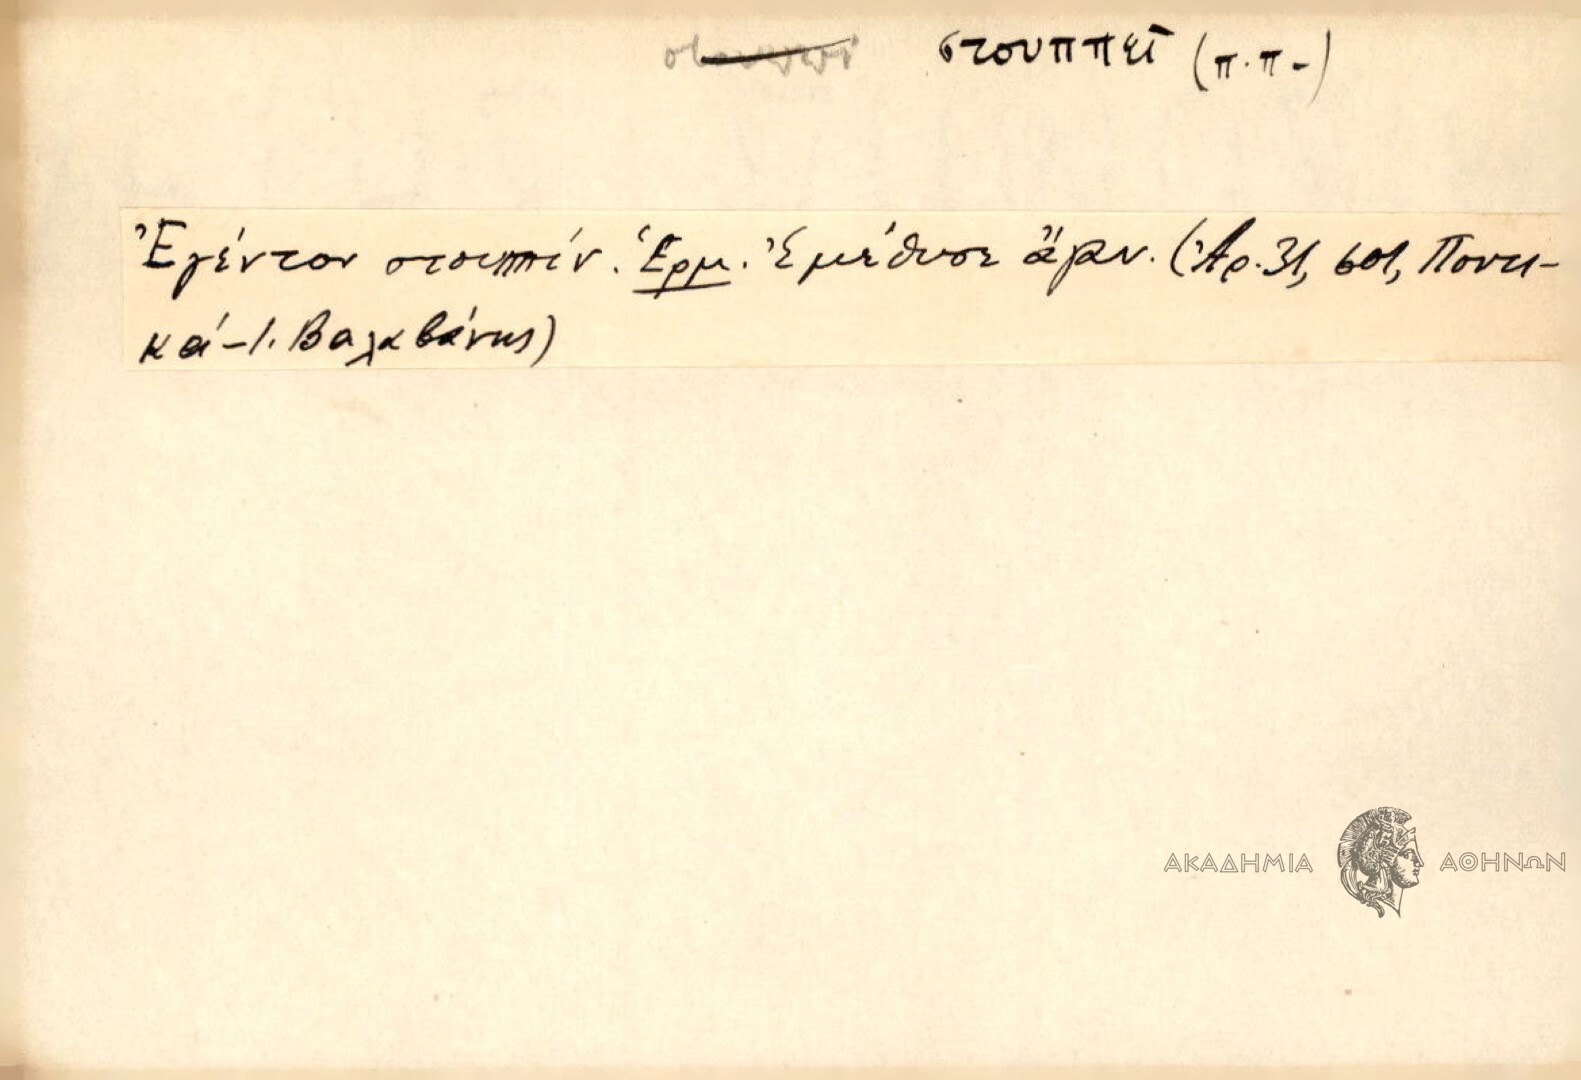 στουππεῖ (π.π-)
Ἐγέντον στουππίν. Ἑρμ. Ἐμέθυσε ἄγαν. (Ἀρ. 31, 601, Ποντι-
κά-Ι. Βαλαβάνης)
ΑΚΑΔΗΜΙΑ ΑΘΗΝΩΝ